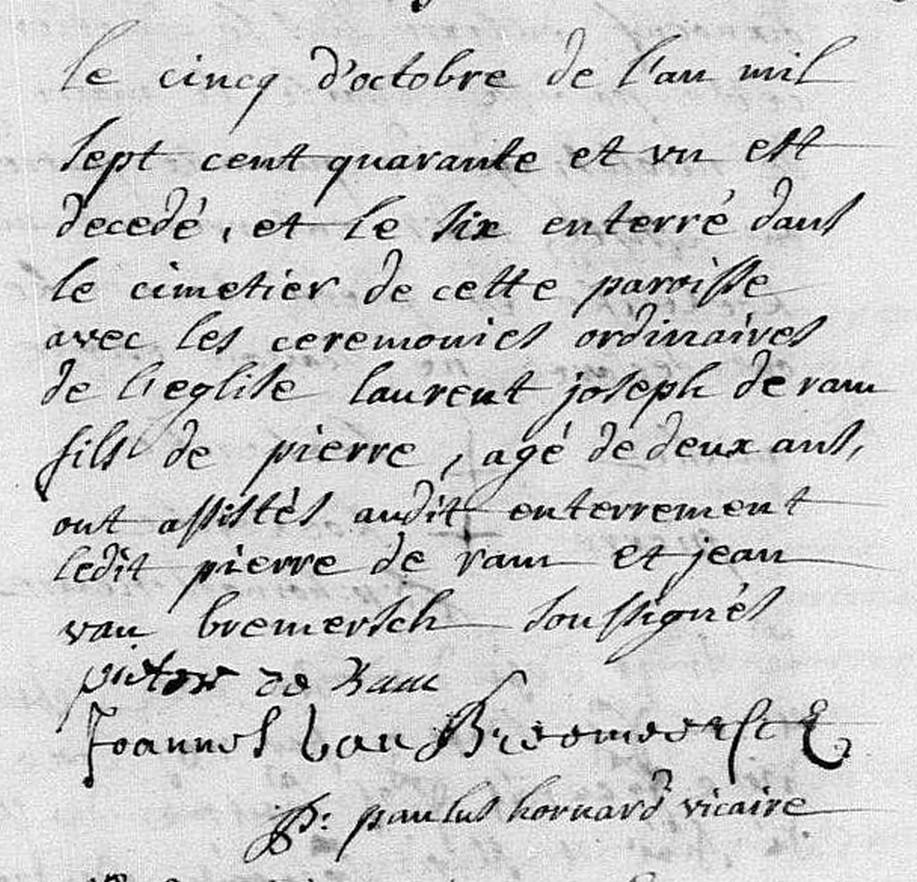 le cincq d'octobre de l'an mil
sept cent quarante et un est
decedé, et le six enterré dans
le cimetier de cette paroisse
avec les ceremonies ordinaires
de l'eglise laurent joseph de ram
fils de pierre, agé de deux ans,
ont assistés audit enterrement
ledit pierre de ram et jean
van bremersch soussignés
pieter de Ram
Joannes Van Breemeersch
P: paulus hornard vicaire